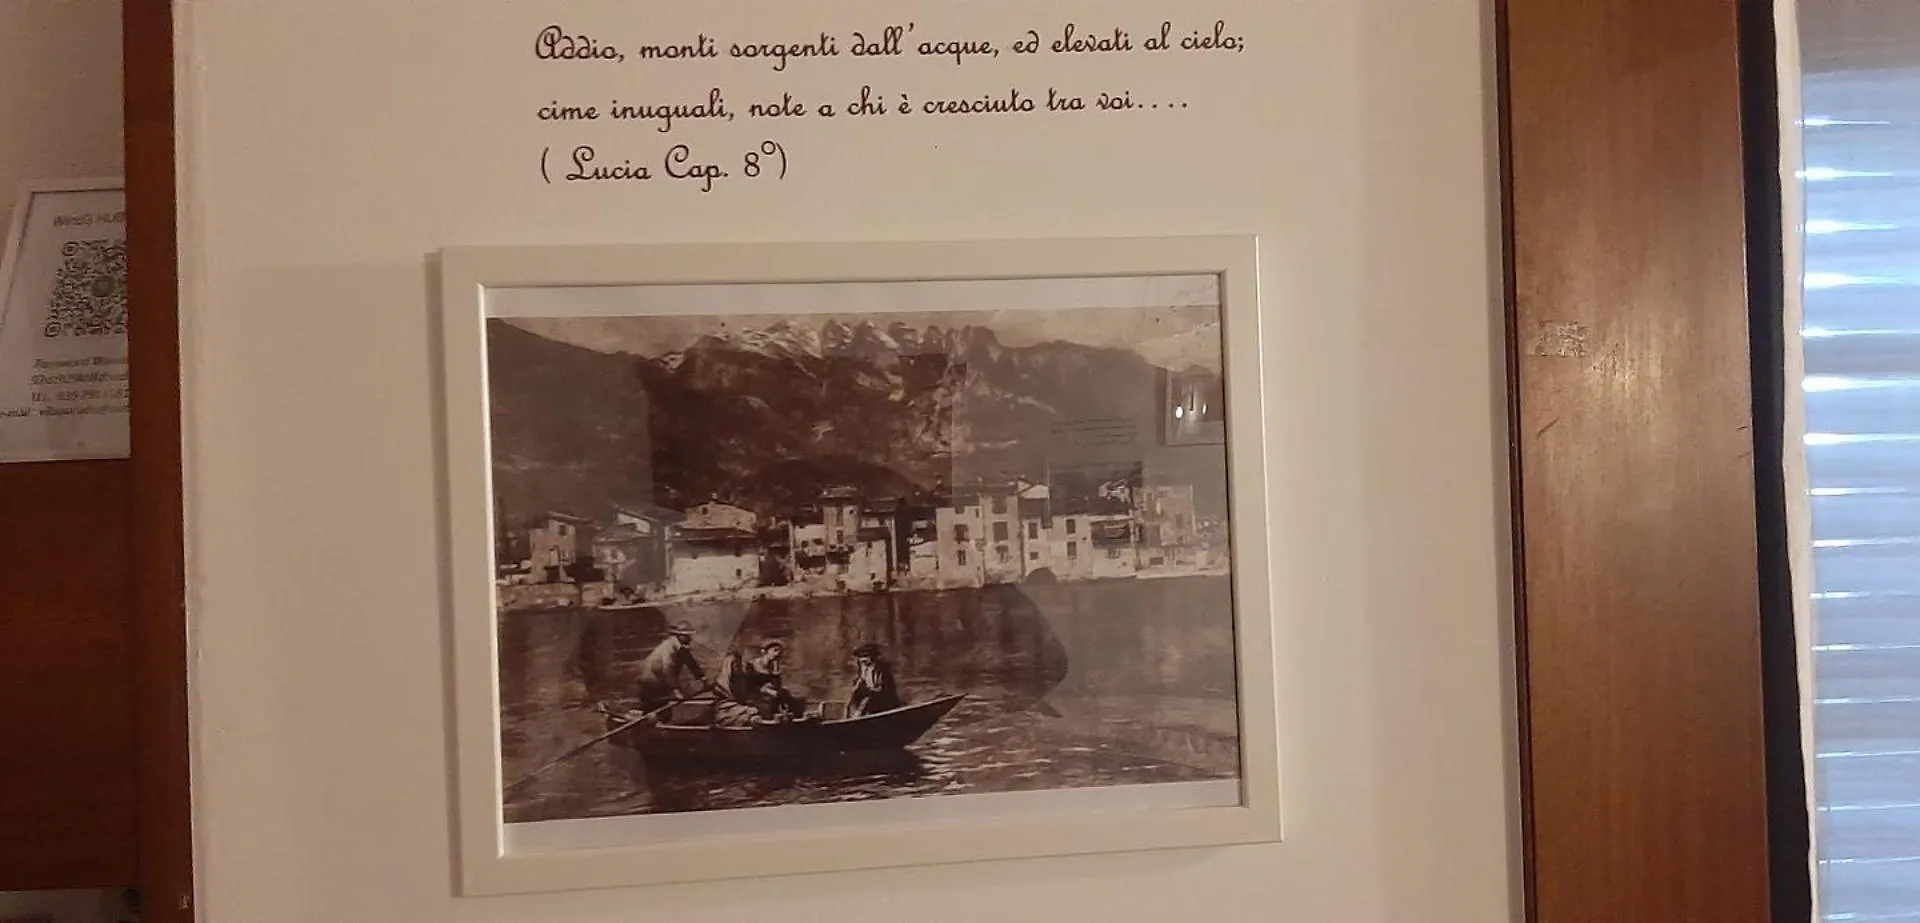 Addio, monti sorgenti dall'acque, ed elevati al cielo;
cime inuguali, note a chi è cresciuto tra voi....
( Lucia Cap. 8°)
Password